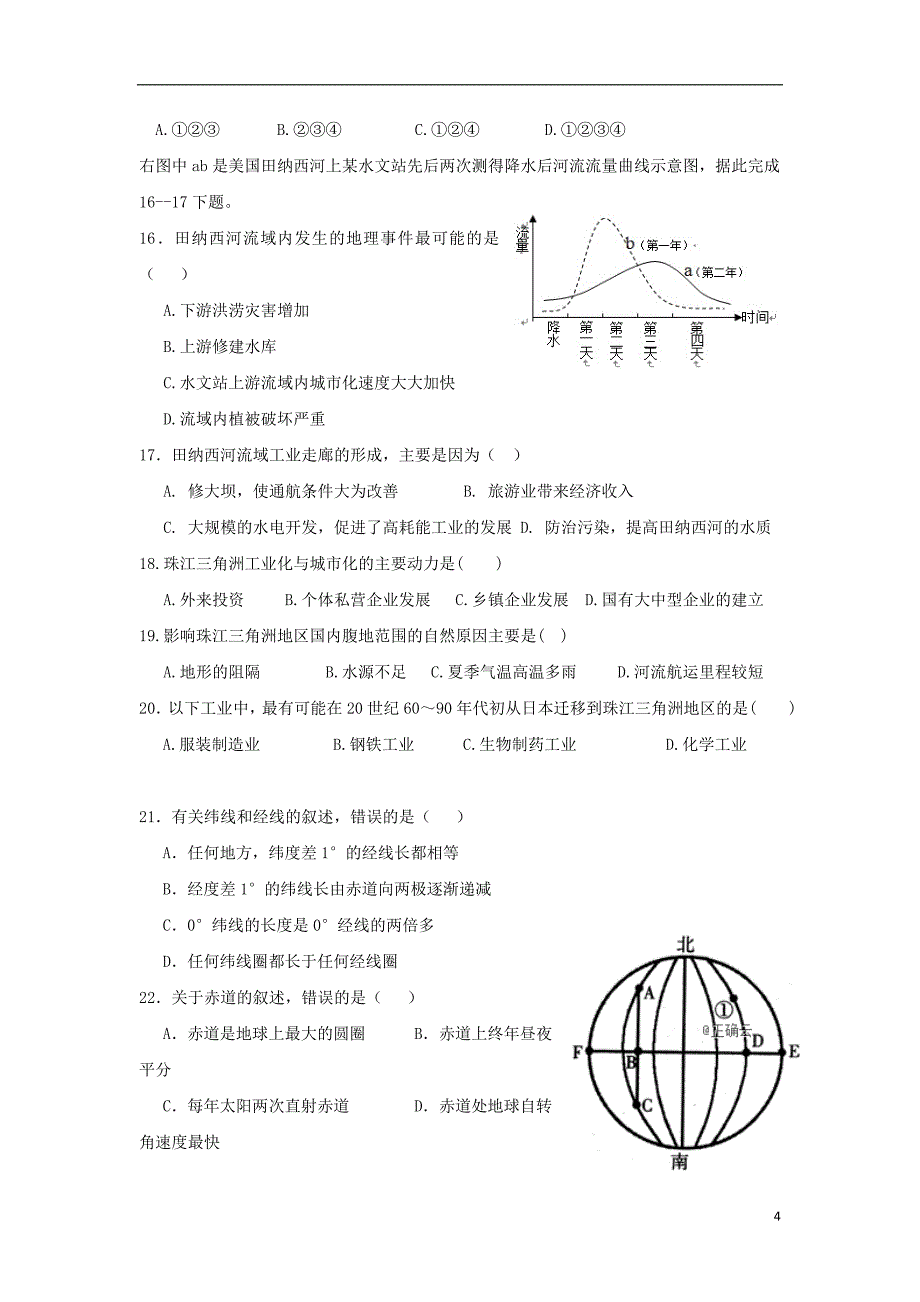 A.①②③ B.②③④ C.①②④ D.①②③④
右图中 ab 是美国田纳西河上某水文站先后两次测得降水后河流流量曲线示意图，据此完成
16--17 下题。
16．田纳西河流域内发生的地理事件最可能的是
（ ）
A.下游洪涝灾害增加
B.上游修建水库
C.水文站上游流域内城市化速度大大加快
D.流域内植被破坏严重
流量
b（第一年）
a（第二年）
时间
降水
第一天
第二天
第三天
第四天
17．田纳西河流域工业走廊的形成，主要是因为（ ）
A. 修大坝，使通航条件大为改善 B. 旅游业带来经济收入
C. 大规模的水电开发，促进了高耗能工业的发展 D. 防治污染，提高田纳西河的水质
18.珠江三角洲工业化与城市化的主要动力是( )
A.外来投资 B.个体私营企业发展 C.乡镇企业发展 D.国有大中型企业的建立
19.影响珠江三角洲地区国内腹地范围的自然原因主要是( )
A.地形的阻隔 B.水源不足 C.夏季气温高温多雨 D.河流航运里程较短
20．以下工业中，最有可能在 20 世纪 60～90 年代初从日本迁移到珠江三角洲地区的是( )
A.服装制造业 B.钢铁工业 C.生物制药工业 D.化学工业
21．有关纬线和经线的叙述，错误的是（ ）
A．任何地方，纬度差 1°的经线长都相等
B．经度差 1°的纬线长由赤道向两极逐渐递减
C．0°纬线的长度是 0°经线的两倍多
D．任何纬线圈都长于任何经线圈
22．关于赤道的叙述，错误的是（ ）
A．赤道是地球上最大的圆圈 B．赤道上终年昼夜
平分
C．每年太阳两次直射赤道 D．赤道处地球自转
角速度最快
北
A
①
@正确云
F
B
D
E
C
南
4